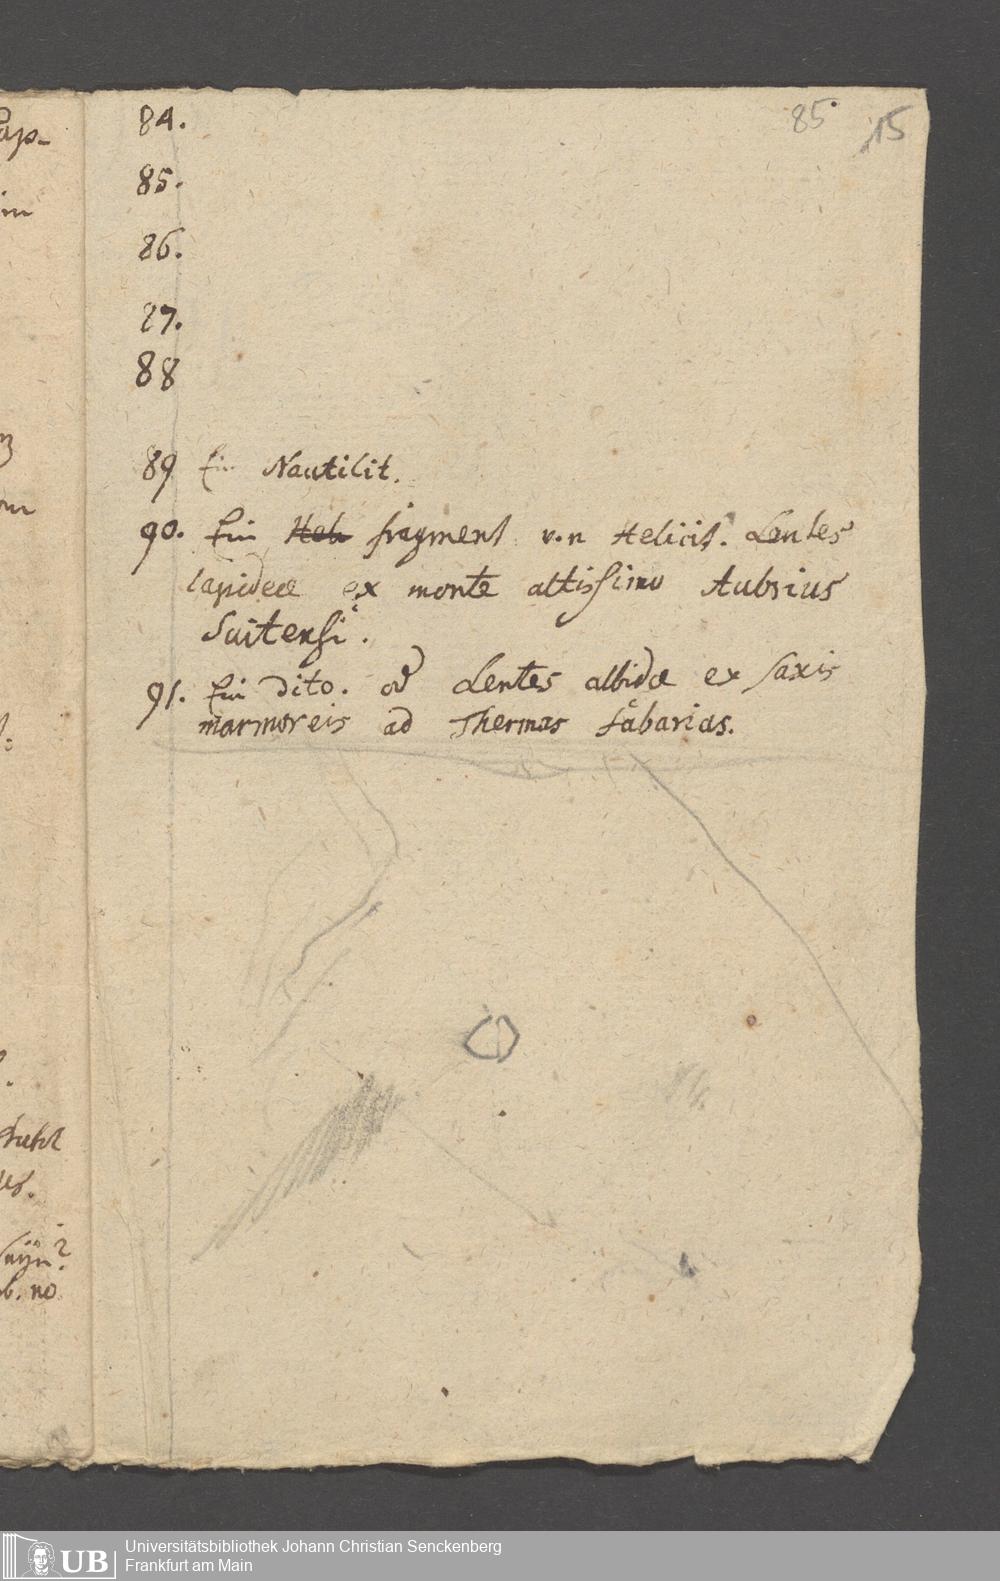 84.
85.
15
85.
86.
87.
88
89 Ein Nautilit.
90. Ein Heli fragment v.n Helicit. Lentes
lapideæ ex monte altissimo
Suitensi.
91. Ein dito. od Lentes albidæ ex saxis
marmoreis ad Thermas fabarias.
no
UB
Universitätsbibliothek Johann Christian Senckenberg
Frankfurt am Main